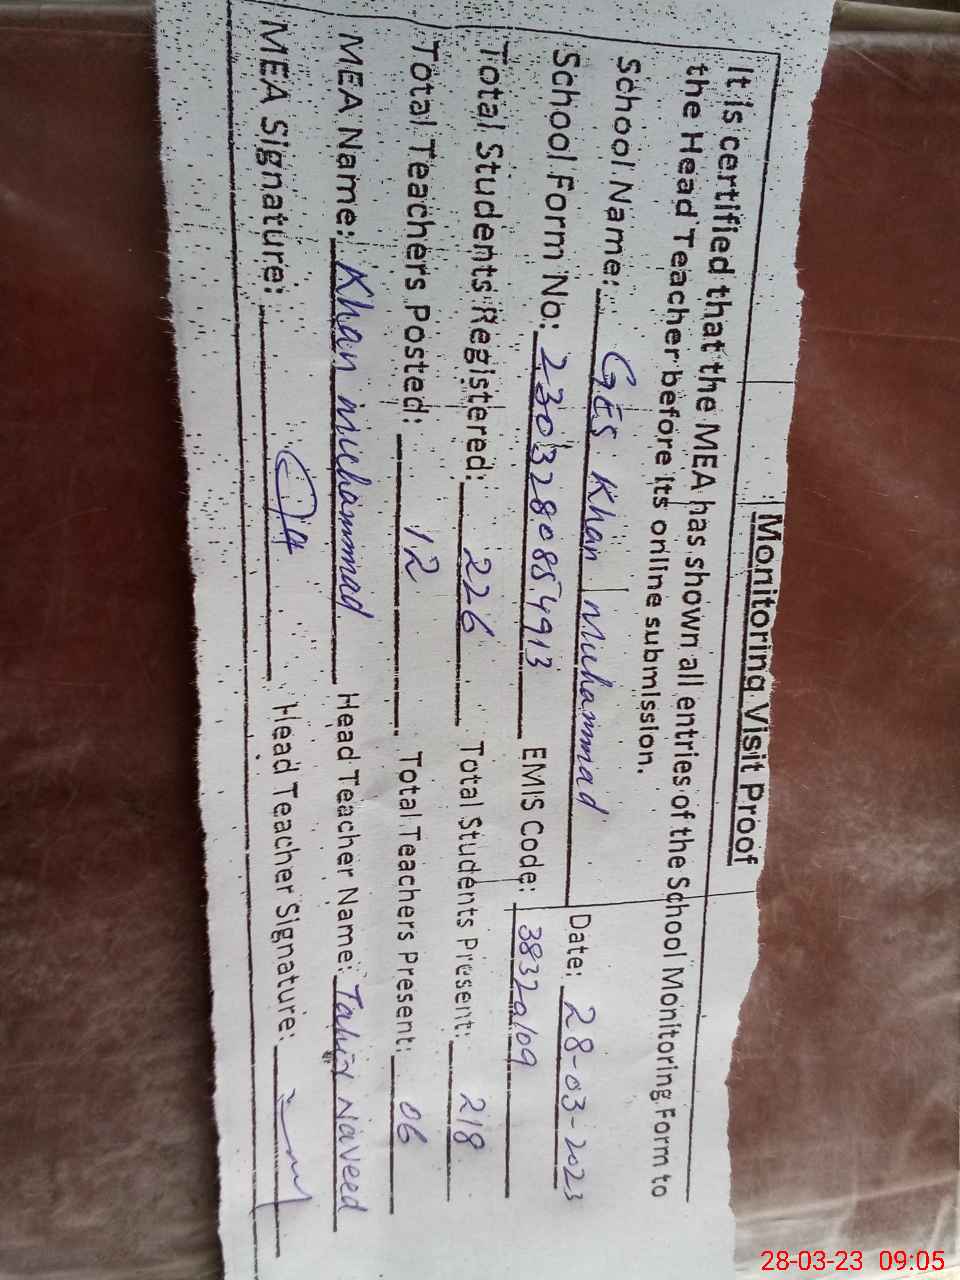 Monitoring Visit Proof
It is certified that the MEA has shown all entries of the School Monitoring Form to
the Head Teacher before its online submission.
School Name: GES Khan Muhammad Date: 28-03-2023
School Form No: 2303280854913 EMIS Code:
Total Students Registered: 226 Total Students Present: 218
Total Teachers Posted: 12 Total Teachers Present: 06
MEA Name: Khan Muhammad Head Teacher Name: Tahir Naveed
MEA Signature: Head Teacher Signature:
28-03-23 09:05